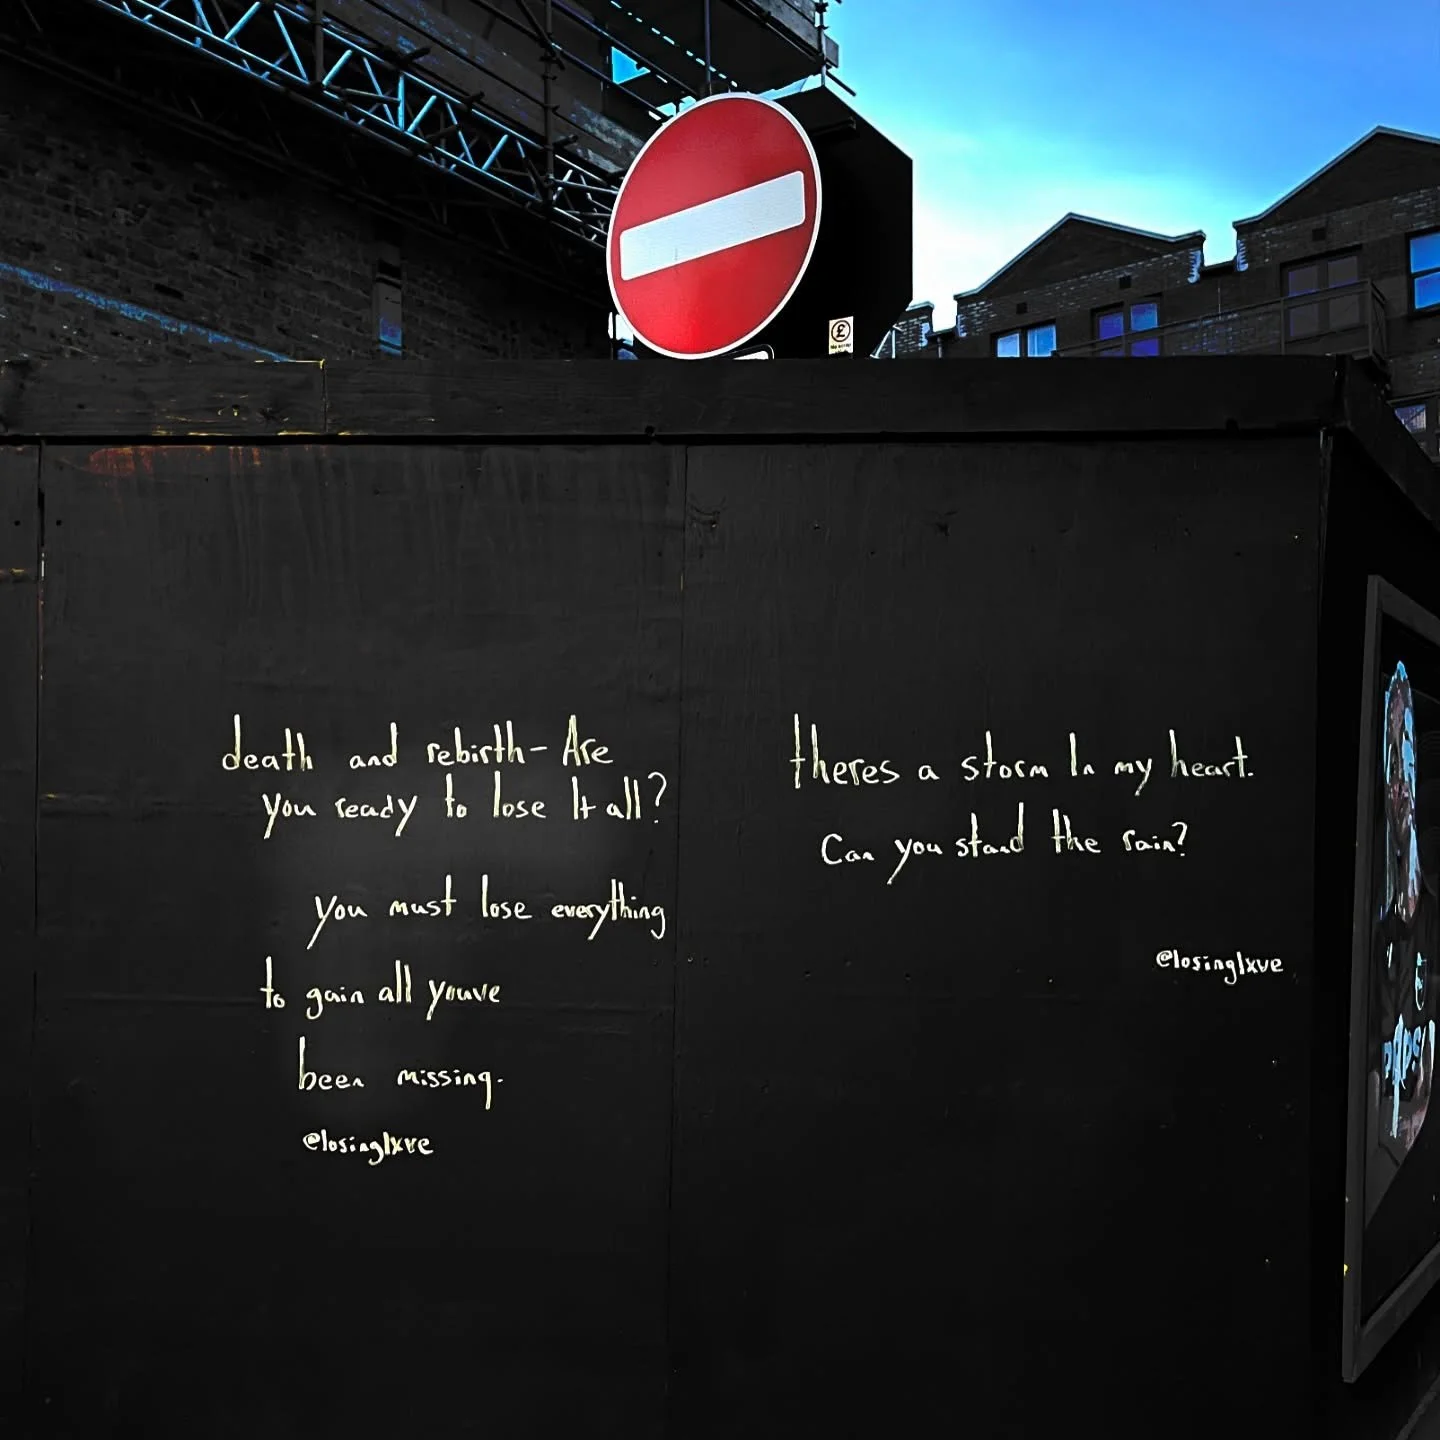 death and rebirth - Are
you ready to lose It all?
you must lose everything
to gain all youve
been missing.
@losinglxve
theres a storm In my heart.
Can you stand the rain?
@losinglxve
£